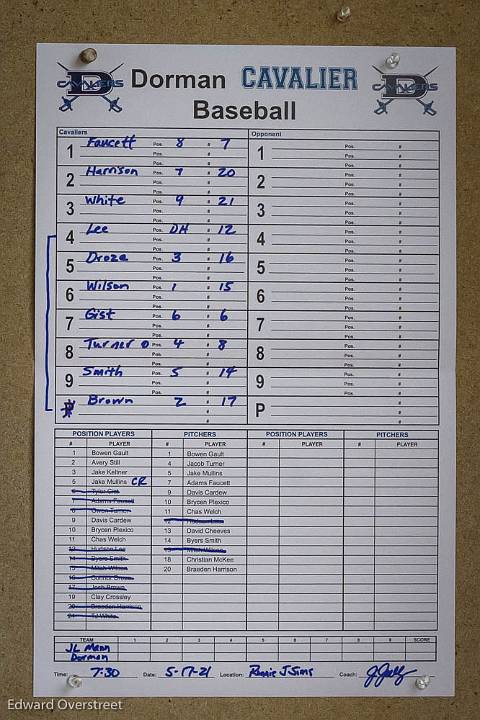 D CAVALIERS Dorman CAVALIER D CAVALIERS
Baseball
Cavaliers Opponent
1 Faucett Pos. 8 # 7 1 Pos. #
2 Harrison Pos. 7 # 20 2 Pos. #
3 White Pos. 9 # 21 3 Pos. #
4 Lee Pos. DH # 12 4 Pos. #
5 Droze Pos. 3 # 16 5 Pos. #
6 Wilson Pos. 1 # 15 6 Pos. #
7 Gist Pos. 6 # 6 7 Pos. #
8 Turner O Pos. 4 # 8 8 Pos. #
9 Smith Pos. 5 # 14 9 Pos. #
# Brown Pos. 2 # 17 P Pos. #
POSITION PLAYERS PITCHERS POSITION PLAYERS PITCHERS
# PLAYER # PLAYER # PLAYER # PLAYER
1 Bowen Gault 1 Bowen Gault
2 Avery Still 4 Jacob Turner
3 Jake Kellner 5 Jake Mullins
5 Jake Mullins CR 7 Adams Faucett
6 Tyler Gist 9 Davis Cardew
7 Adams Faucett 10 Brycen Plexico
8 Owen Turner 11 Chas Welch
9 Davis Cardew 12 Hudson Lee
10 Brycen Plexico 13 David Cheeves
11 Chas Welch 14 Byers Smith
12 Hudson Lee 15 Mitch Wilson
14 Byers Smith 18 Christian McKee
15 Mitch Wilson 20 Braeden Harrison
16 Connor Droze
17 Josh Brown
19 Clay Crossley
20 Braeden Harrison
21 TJ White
TEAM 1 2 3 4 5 6 7 8 9 SCORE
JL Mann
Dorman
Time: 7:30 Date: 5-17-21 Location: Ronnie J Sims Coach:
Edward Overstreet